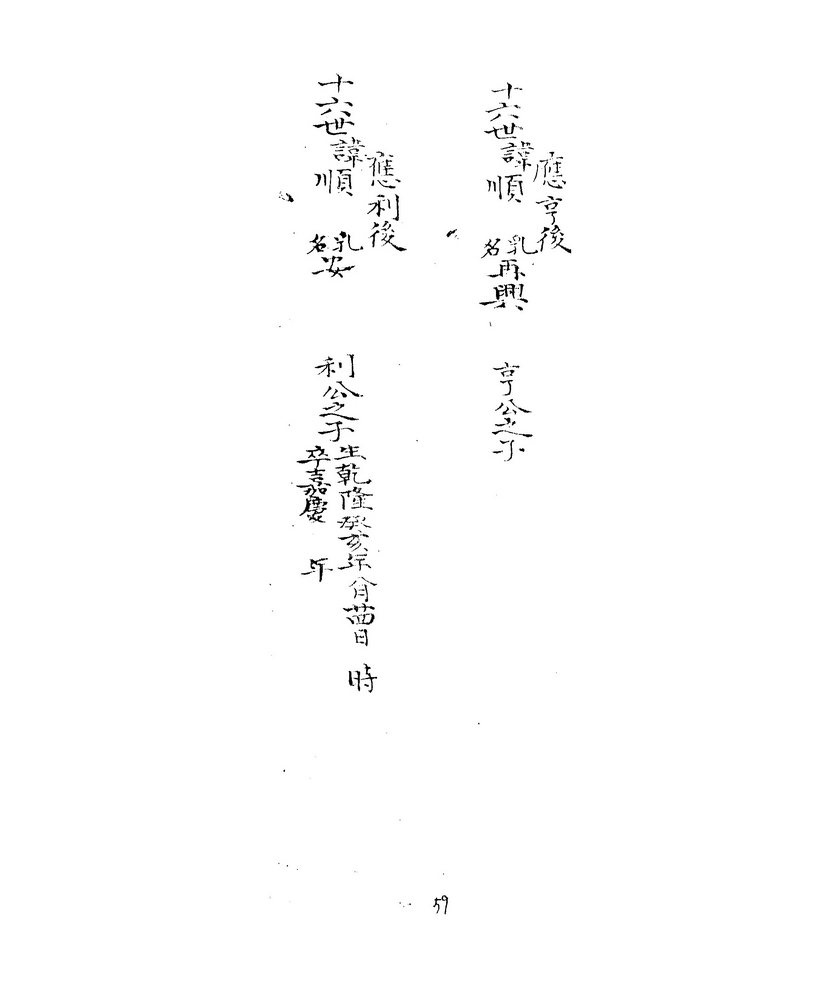 應亨後
十六世諱順 乳名再興 亨公之子
應利後
十六世諱順 乳名安 利公之子
生乾隆癸亥年 月廿四日 時
卒嘉慶 年
59